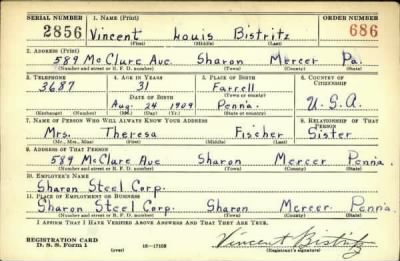 SERIAL NUMBER 1. NAME (Print) ORDER NUMBER
2856 Vincent Louis Bistritz 686
(First) (Middle) (Last)
2. ADDRESS (Print)
589 McClure Ave. Sharon Mercer Pa.
(Number and street or R. F. D. number) (Town) (County) (State)
3. TELEPHONE 4. AGE IN YEARS 5. PLACE OF BIRTH 6. COUNTRY OF CITIZENSHIP
3687 31 Farrell
DATE OF BIRTH (Town or county)
Aug. 24 1909 Penna. U.S.A.
(Exchange) (Number) (Mo.) (Day) (Yr.) (State or country)
7. NAME OF PERSON WHO WILL ALWAYS KNOW YOUR ADDRESS 8. RELATIONSHIP OF THAT PERSON
Mrs. Theresa Fischer Sister
(Mr., Mrs., Miss) (First) (Middle) (Last)
9. ADDRESS OF THAT PERSON
589 McClure Ave Sharon Mercer Penna.
(Number and street or R. F. D. number) (Town) (County) (State)
10. EMPLOYER'S NAME
Sharon Steel Corp.
11. PLACE OF EMPLOYMENT OR BUSINESS
Sharon Steel Corp. Sharon Mercer Penna.
(Number and street or R. F. D. number) (Town) (County) (State)
I AFFIRM THAT I HAVE VERIFIED ABOVE ANSWERS AND THAT THEY ARE TRUE.
REGISTRATION CARD
D. S. S. Form 1 (over) 16—17105 Vincent Bistritz
(Registrant's signature)